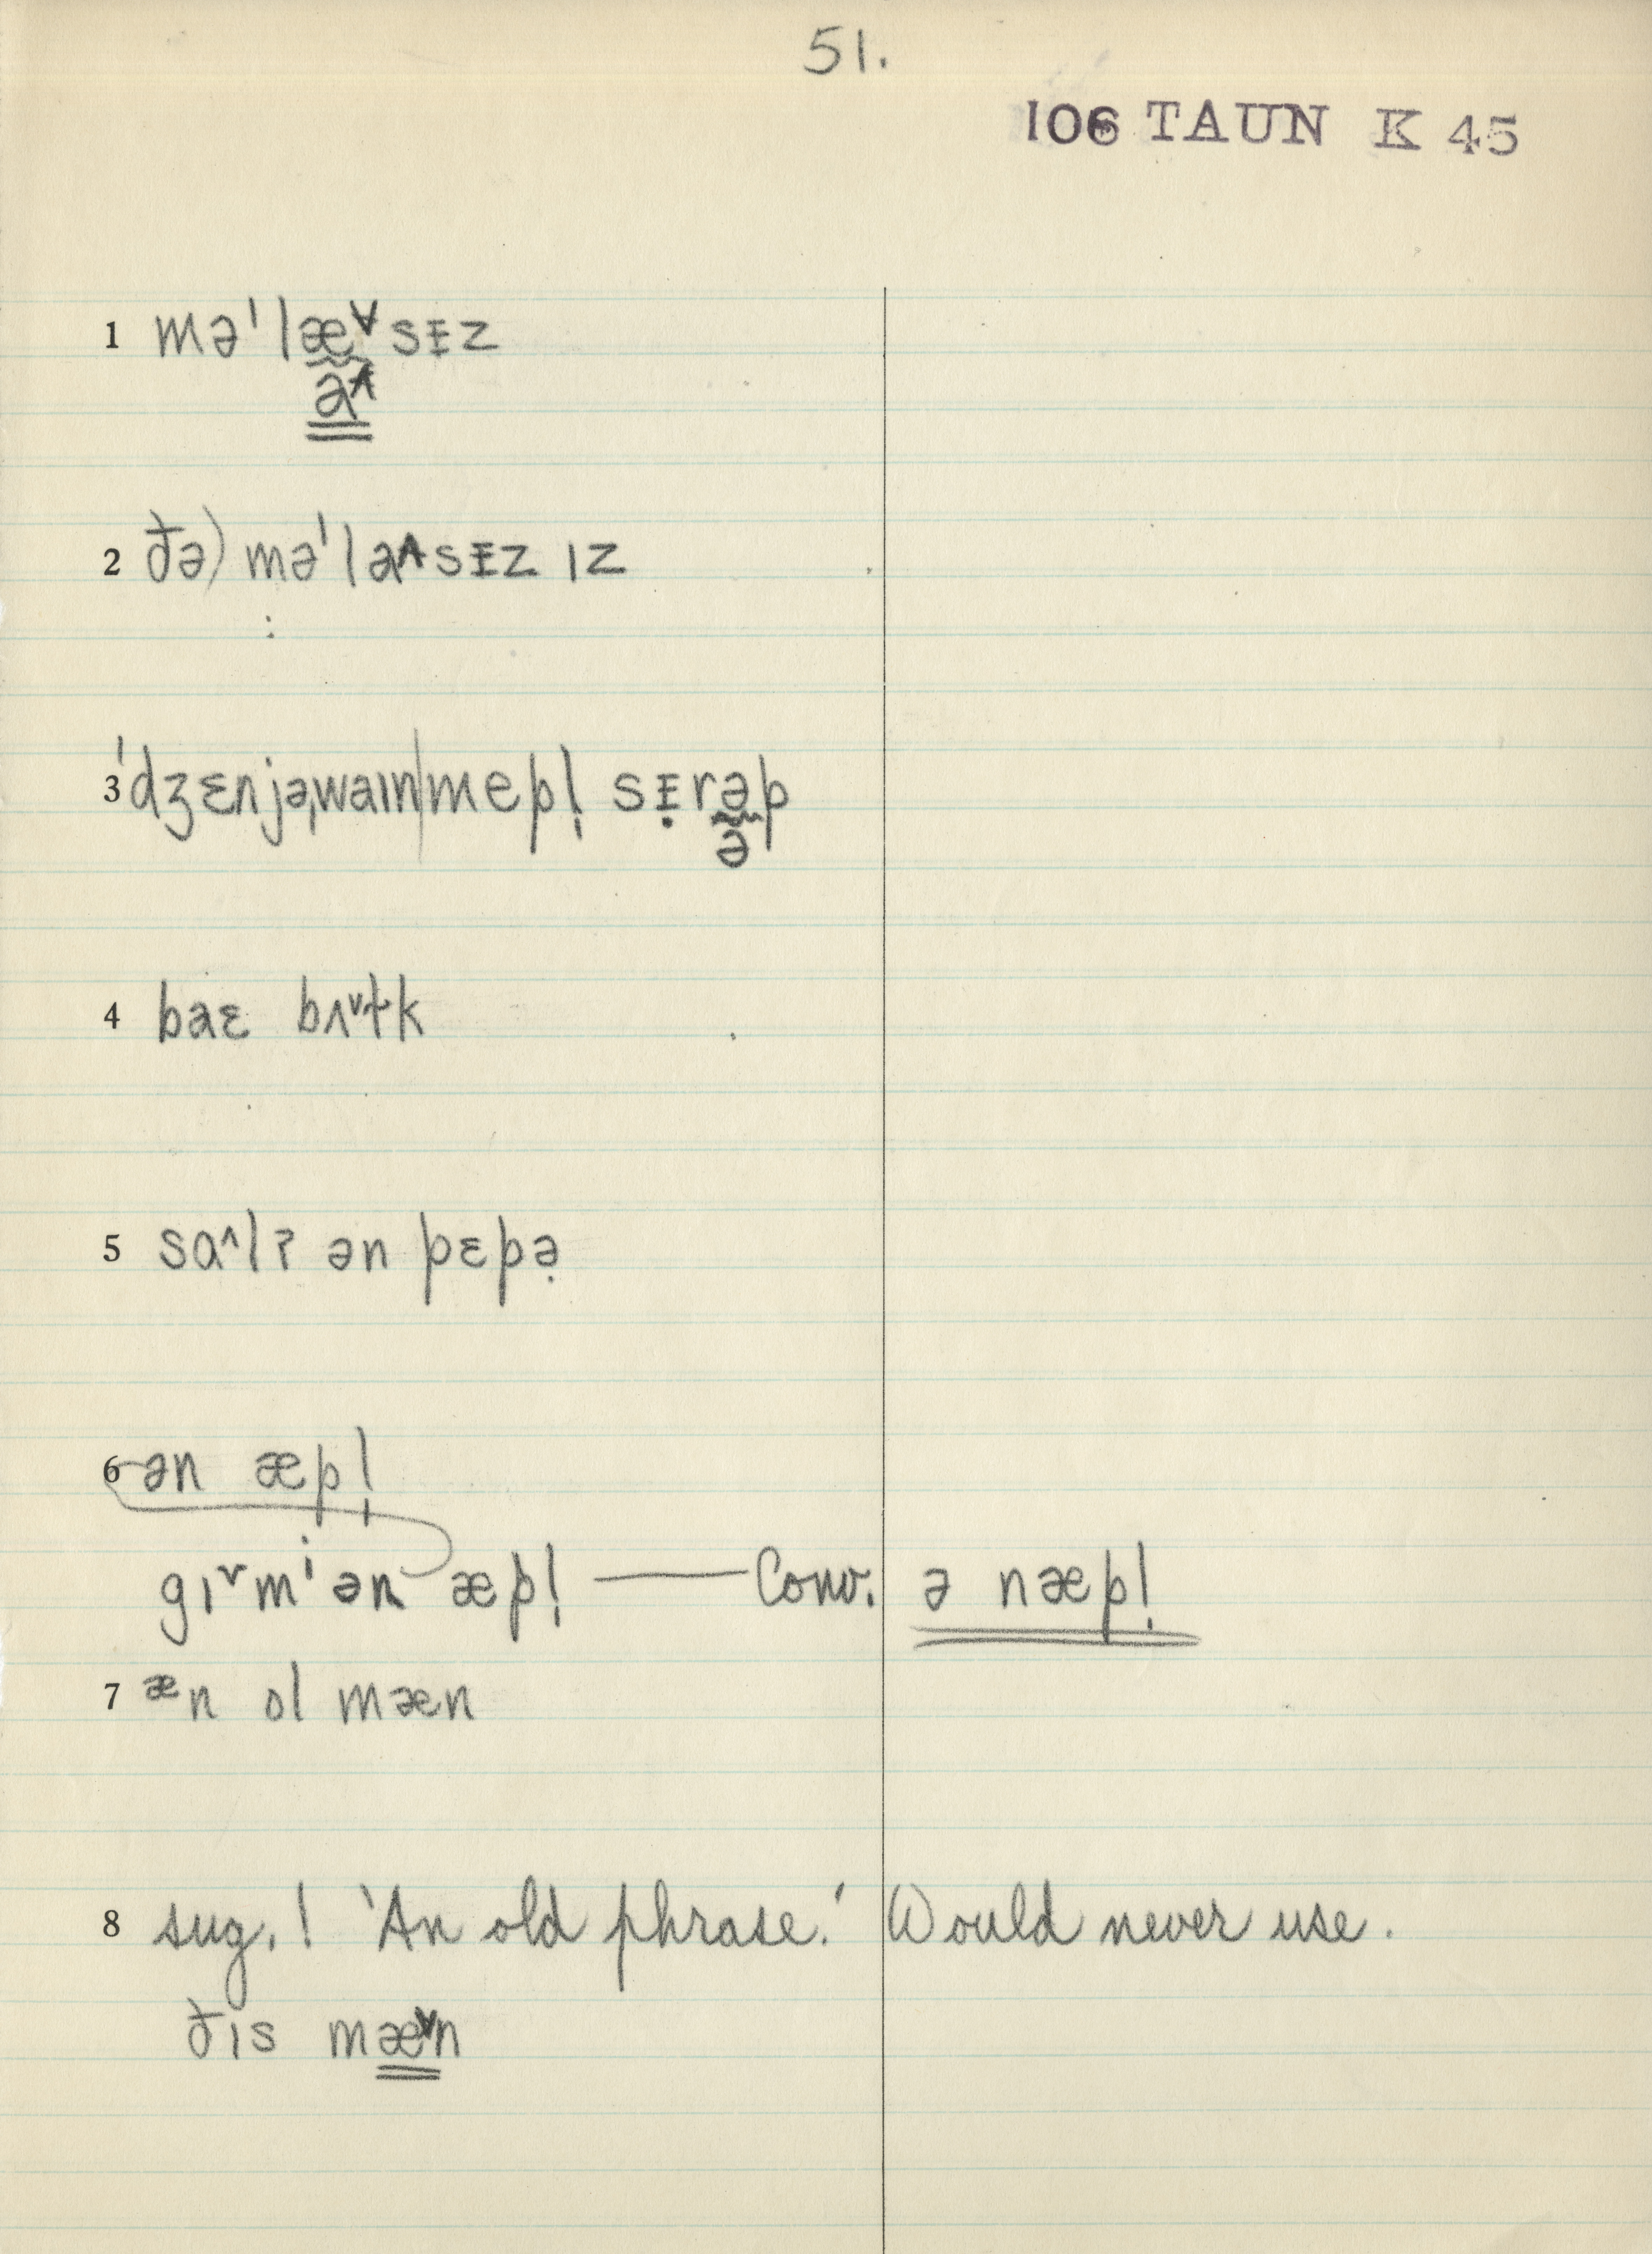 51.
106 TAUN K 45
1 məˈlæ˅sɪ̵z
a˄
2 ðə) məˈla˄sɪ̵z ɪz
:
3 ˈdʒɛnjəˌwaɪn|mepl̩ sɪ̵̣rəp
ə̆
4 baɛ bʌ˅ɫk
5 sɑ˄lʔ ən pɛpə̣
6 ən æpl̩
gɪ˅mⁱ ən æpl̩ — Conv. ə næpl̩
7 æn ol mæn
8 sug.! 'An old phrase.' Would never use.
ðɪs mæ˅n